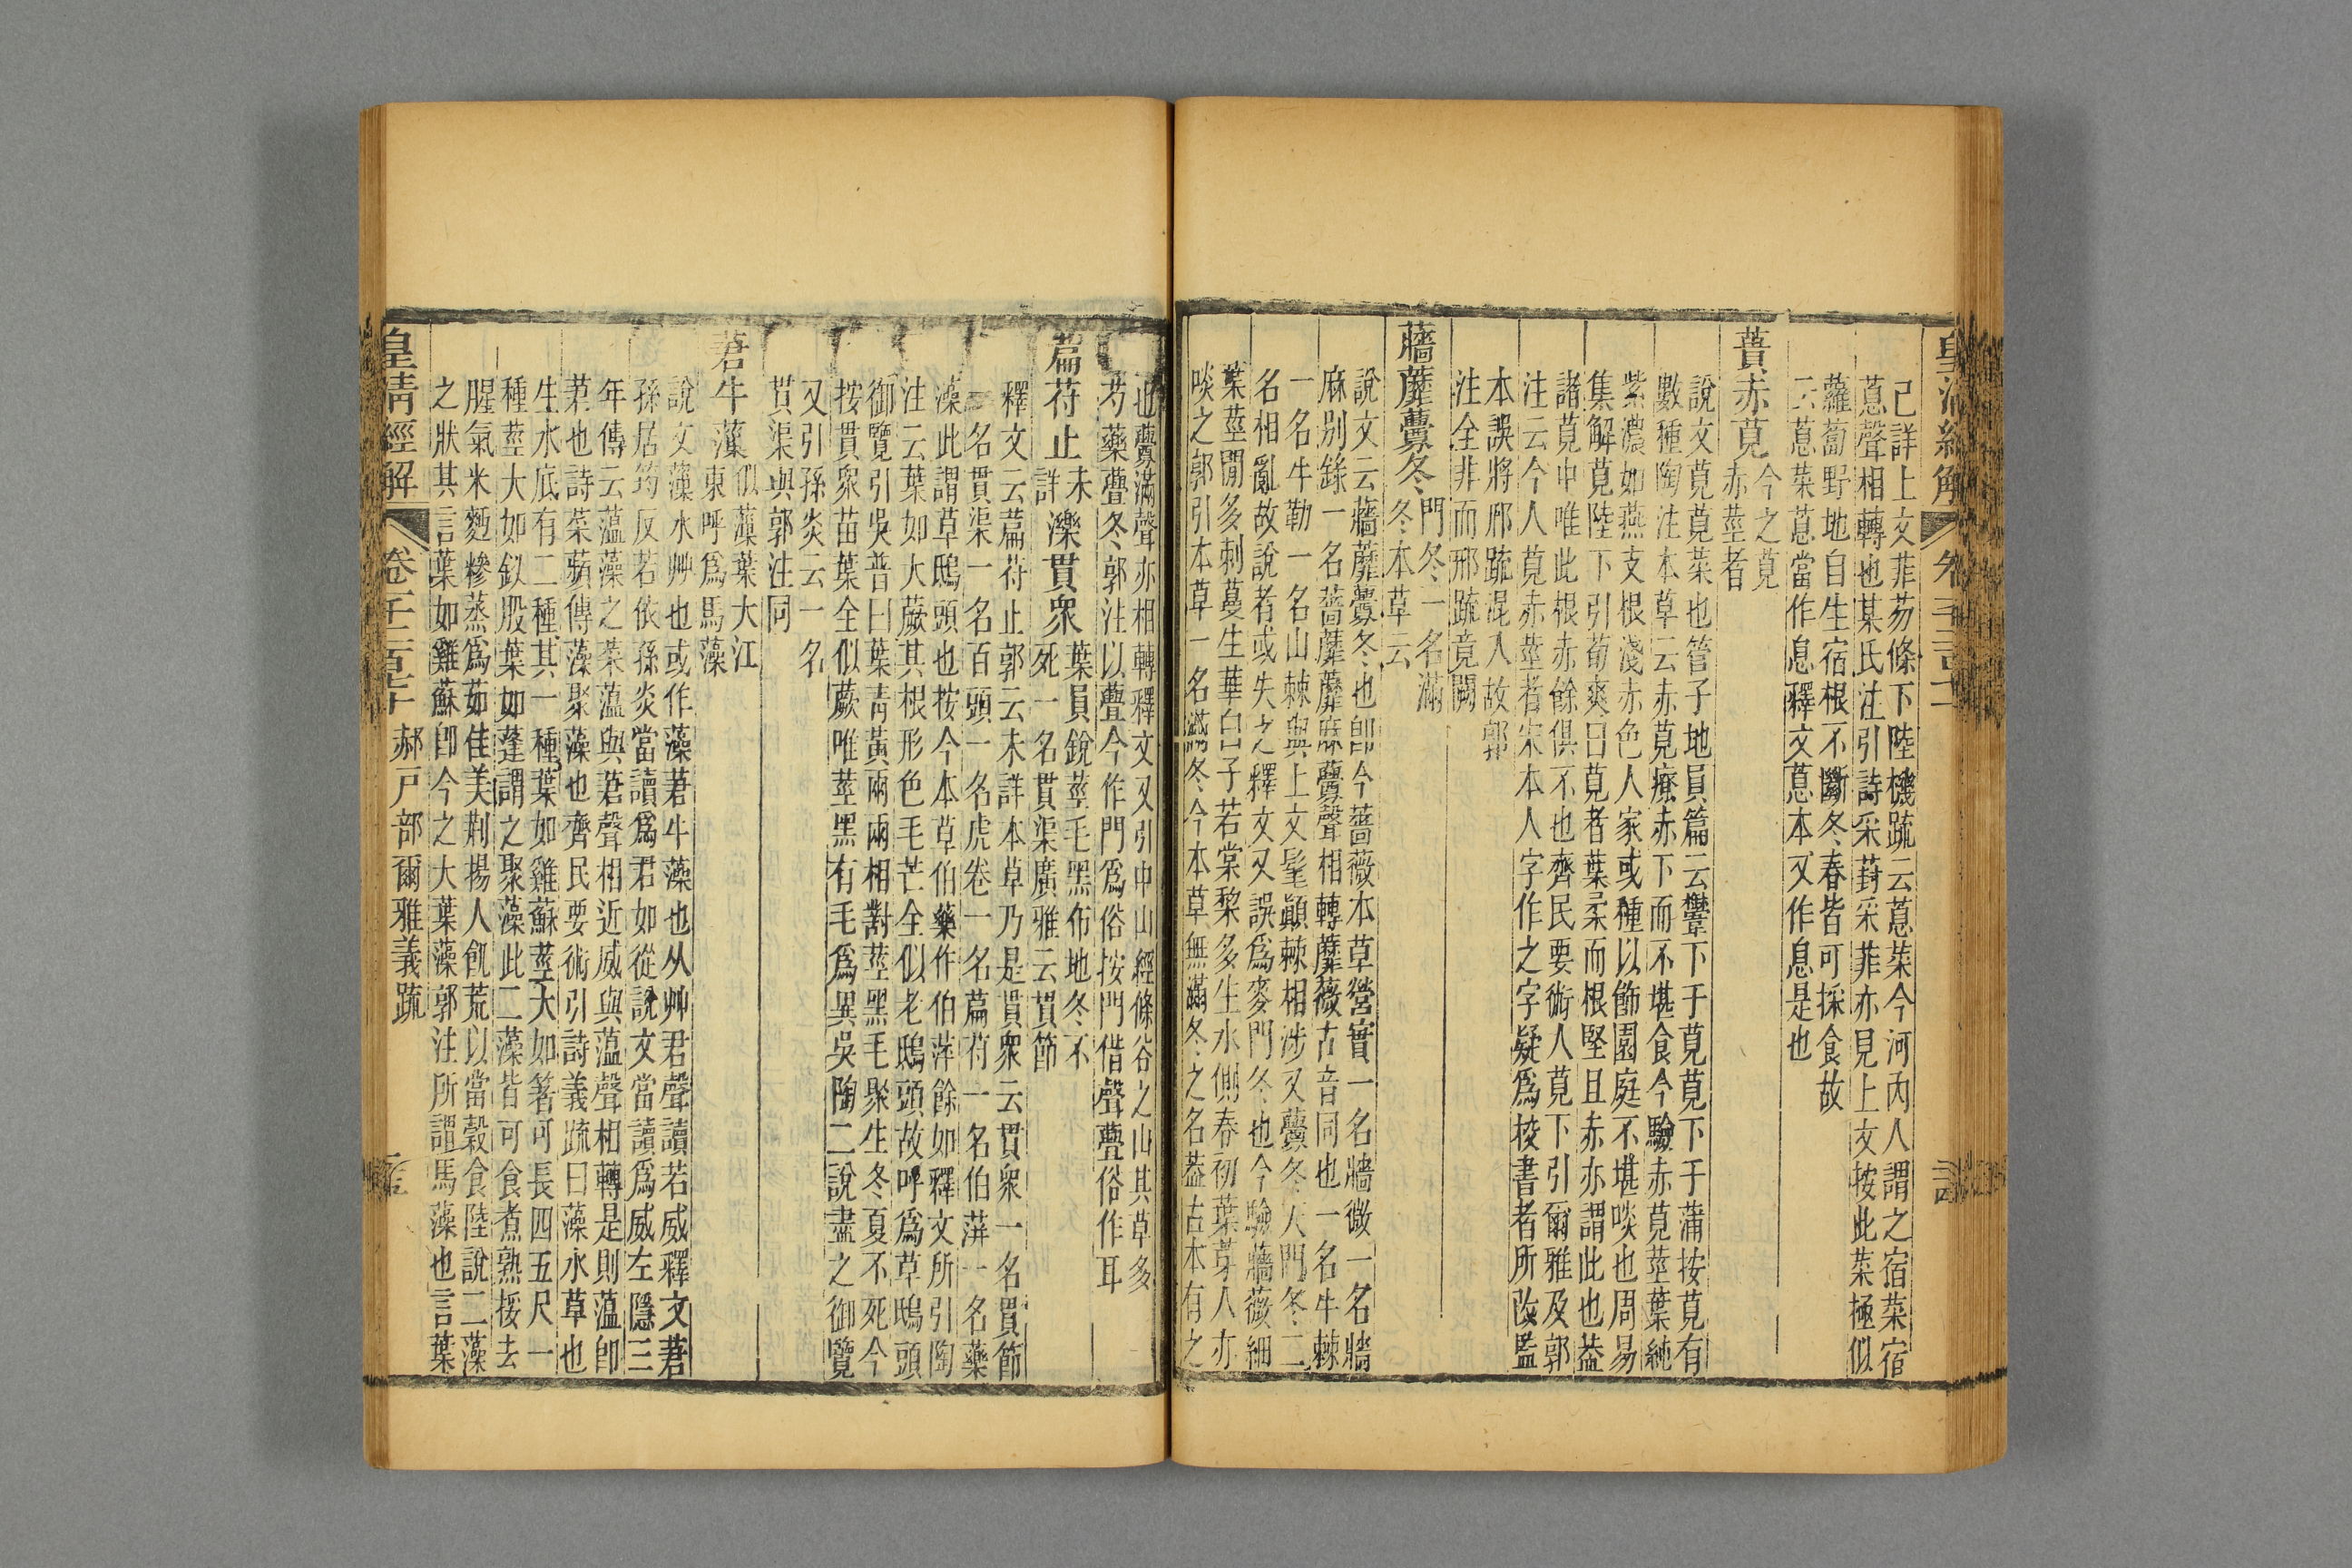 已詳上文菲芴條下陸機疏云蒠菜今河內人謂之宿菜宿
蒠聲相轉也某氏注引詩采葑采菲亦見上文按此菜極似
蘿蔔野地自生宿根不斷冬春皆可採食故
云蒠菜蒠當作息釋文蒠本又作息是也
蕢赤莧
今之莧
赤莖者
說文莧莧菜也管子地員篇云虆下于莧莧下于蒲按莧有
數種陶注本草云赤莧療赤下而不堪食今驗赤莧莖葉純
紫濃如燕支根淺赤色人家或種以飾園庭不堪啖也周易
集解莧陸下引荀爽曰莧者葉柔而根堅且赤亦謂此也葢
諸莧中唯此根赤餘俱不也齊民要術人莧下引爾雅及郭
注云今人莧赤莖者宋本人字作之字疑爲挍書者所改監
本誤將邢疏混入故郭
注全非而邢疏竟闕
蘠蘼虋冬
門冬一名滿
冬本草云
說文云蘠蘼虋冬也卽今薔薇本草營實一名牆微一名牆
麻別錄一名薔蘼蘼麻虋聲相轉蘼薇古音同也一名牛棘
一名牛勒一名山棘與上文髦顚棘相涉又虋冬天門冬二
名相亂故說者或失之釋文又誤爲麥門冬也今驗蘠薇細
葉莖閒多刺蔓生華白子若棠棃多生水側春初葉芽人亦
啖之郭引本草一名滿冬今本草無滿冬之名葢古本有之
也虋滿聲亦相轉釋文又引中山經條谷之山其草多
芍藥虋冬郭注以虋今作門爲俗按門借聲虋俗作耳
萹苻止
未
詳
濼貫衆
葉員銳莖毛黑布地冬不
死一名貫渠廣雅云貫節
釋文云萹苻止郭云未詳本草乃是貫衆云貫衆一名貫節
一名貫渠一名百頭一名虎卷一名萹苻一名伯萍一名藥
藻此謂草鴟頭也按今本草伯藥作伯萍餘如釋文所引陶
注云葉如大蕨其根形色毛芒全似老鴟頭故呼爲草鴟頭
御覽引吳普曰葉靑黃兩兩相對莖黑毛聚生冬夏不死今
按貫衆苗葉全似蕨唯莖黑有毛爲異吳陶二說盡之御覽
又引孫炎云一名
貫渠與郭注同
莙牛藻
似藻葉大江
東呼爲馬藻
說文藻水艸也或作藻莙牛藻也从艸君聲讀若威釋文莙
孫居筠反若依孫炎當讀爲君如從說文當讀爲威左隱三
年傳云薀藻之菜薀與莙聲相近威與薀聲相轉是則薀卽
莙也詩菜蘋傳藻聚藻也齊民要術引詩義疏曰藻水草也
生水底有二種其一種葉如雞蘇莖大如箸可長四五尺一
種莖大如釵股葉如蓬謂之聚藻此二藻皆可食煮熟挼去
腥氣米麪糝蒸爲茹佳美荆揚人飢荒以當穀食陸說二藻
之狀其言葉如雞蘇卽今之大葉藻郭注所謂馬藻也言葉
皇淸經解
郝戶部爾雅義疏